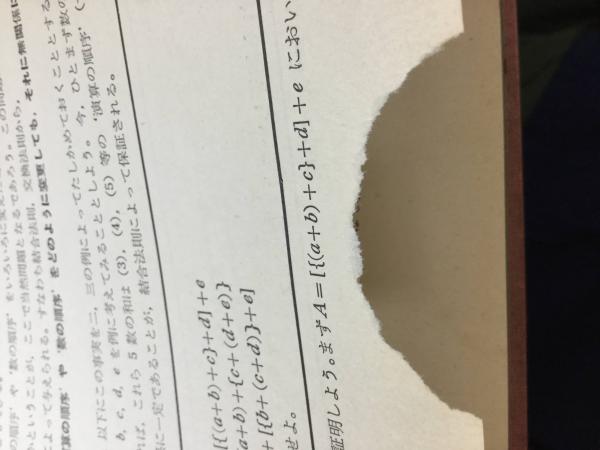 の順序’や‘数の順序’をいろいろに変え
かということが、ここで当然問題となるであろう。この問
によって与えられる。すなわち結合法則、交換法則から、
算の順序’や‘数の順序’をどのように変更しても、それに無関係に
以下にこの事実を二、三の例によってたしかめておくこととする
b, c, d, e を例に考えてみることとしよう。今、ひとまず数の
れば、これら 5 数の和は (3), (4), (5) 等の‘演算の順序’(
に一定であることが、結合法則によって保証される。
[{(a+b)+c}+d]+e
(a+b)+{c+(d+e)}
+[{b+(c+d)}+e]
せよ。
証明しよう。まず A=[{(a+b)+c}+d]+e におい